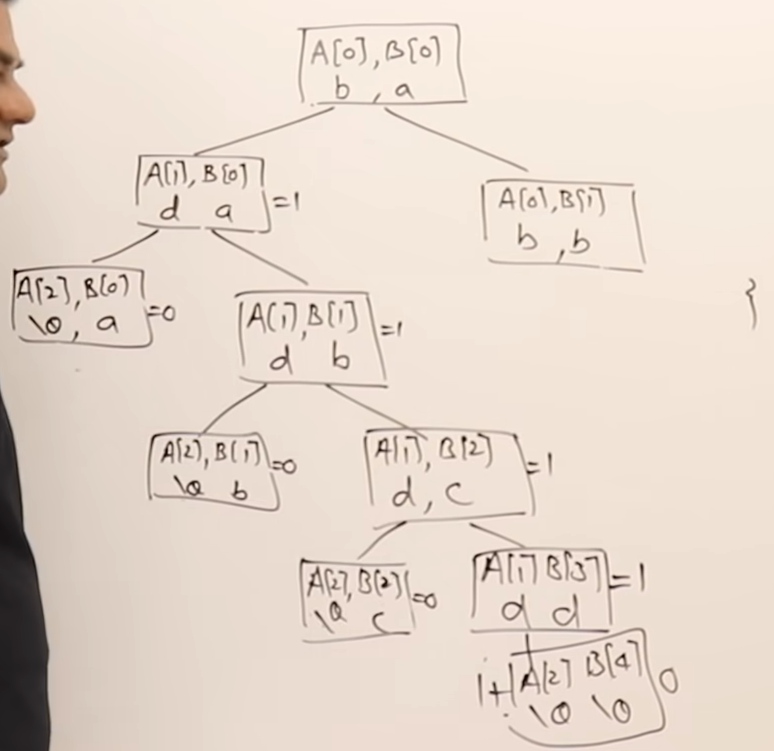 A[0], B[0]
b , a
A[1], B[0]
d a =1
A[0], B[1]
b , b
A[2], B[0]
\0, a =0
A[1], B[1] =1
d b
}
A[2], B[1] =0
\0 b
A[1], B[2] =1
d, c
A[2], B[2] =0
\0 c
A[1] B[3] =1
d d
1+ A[2] B[4] 0
\0 \0